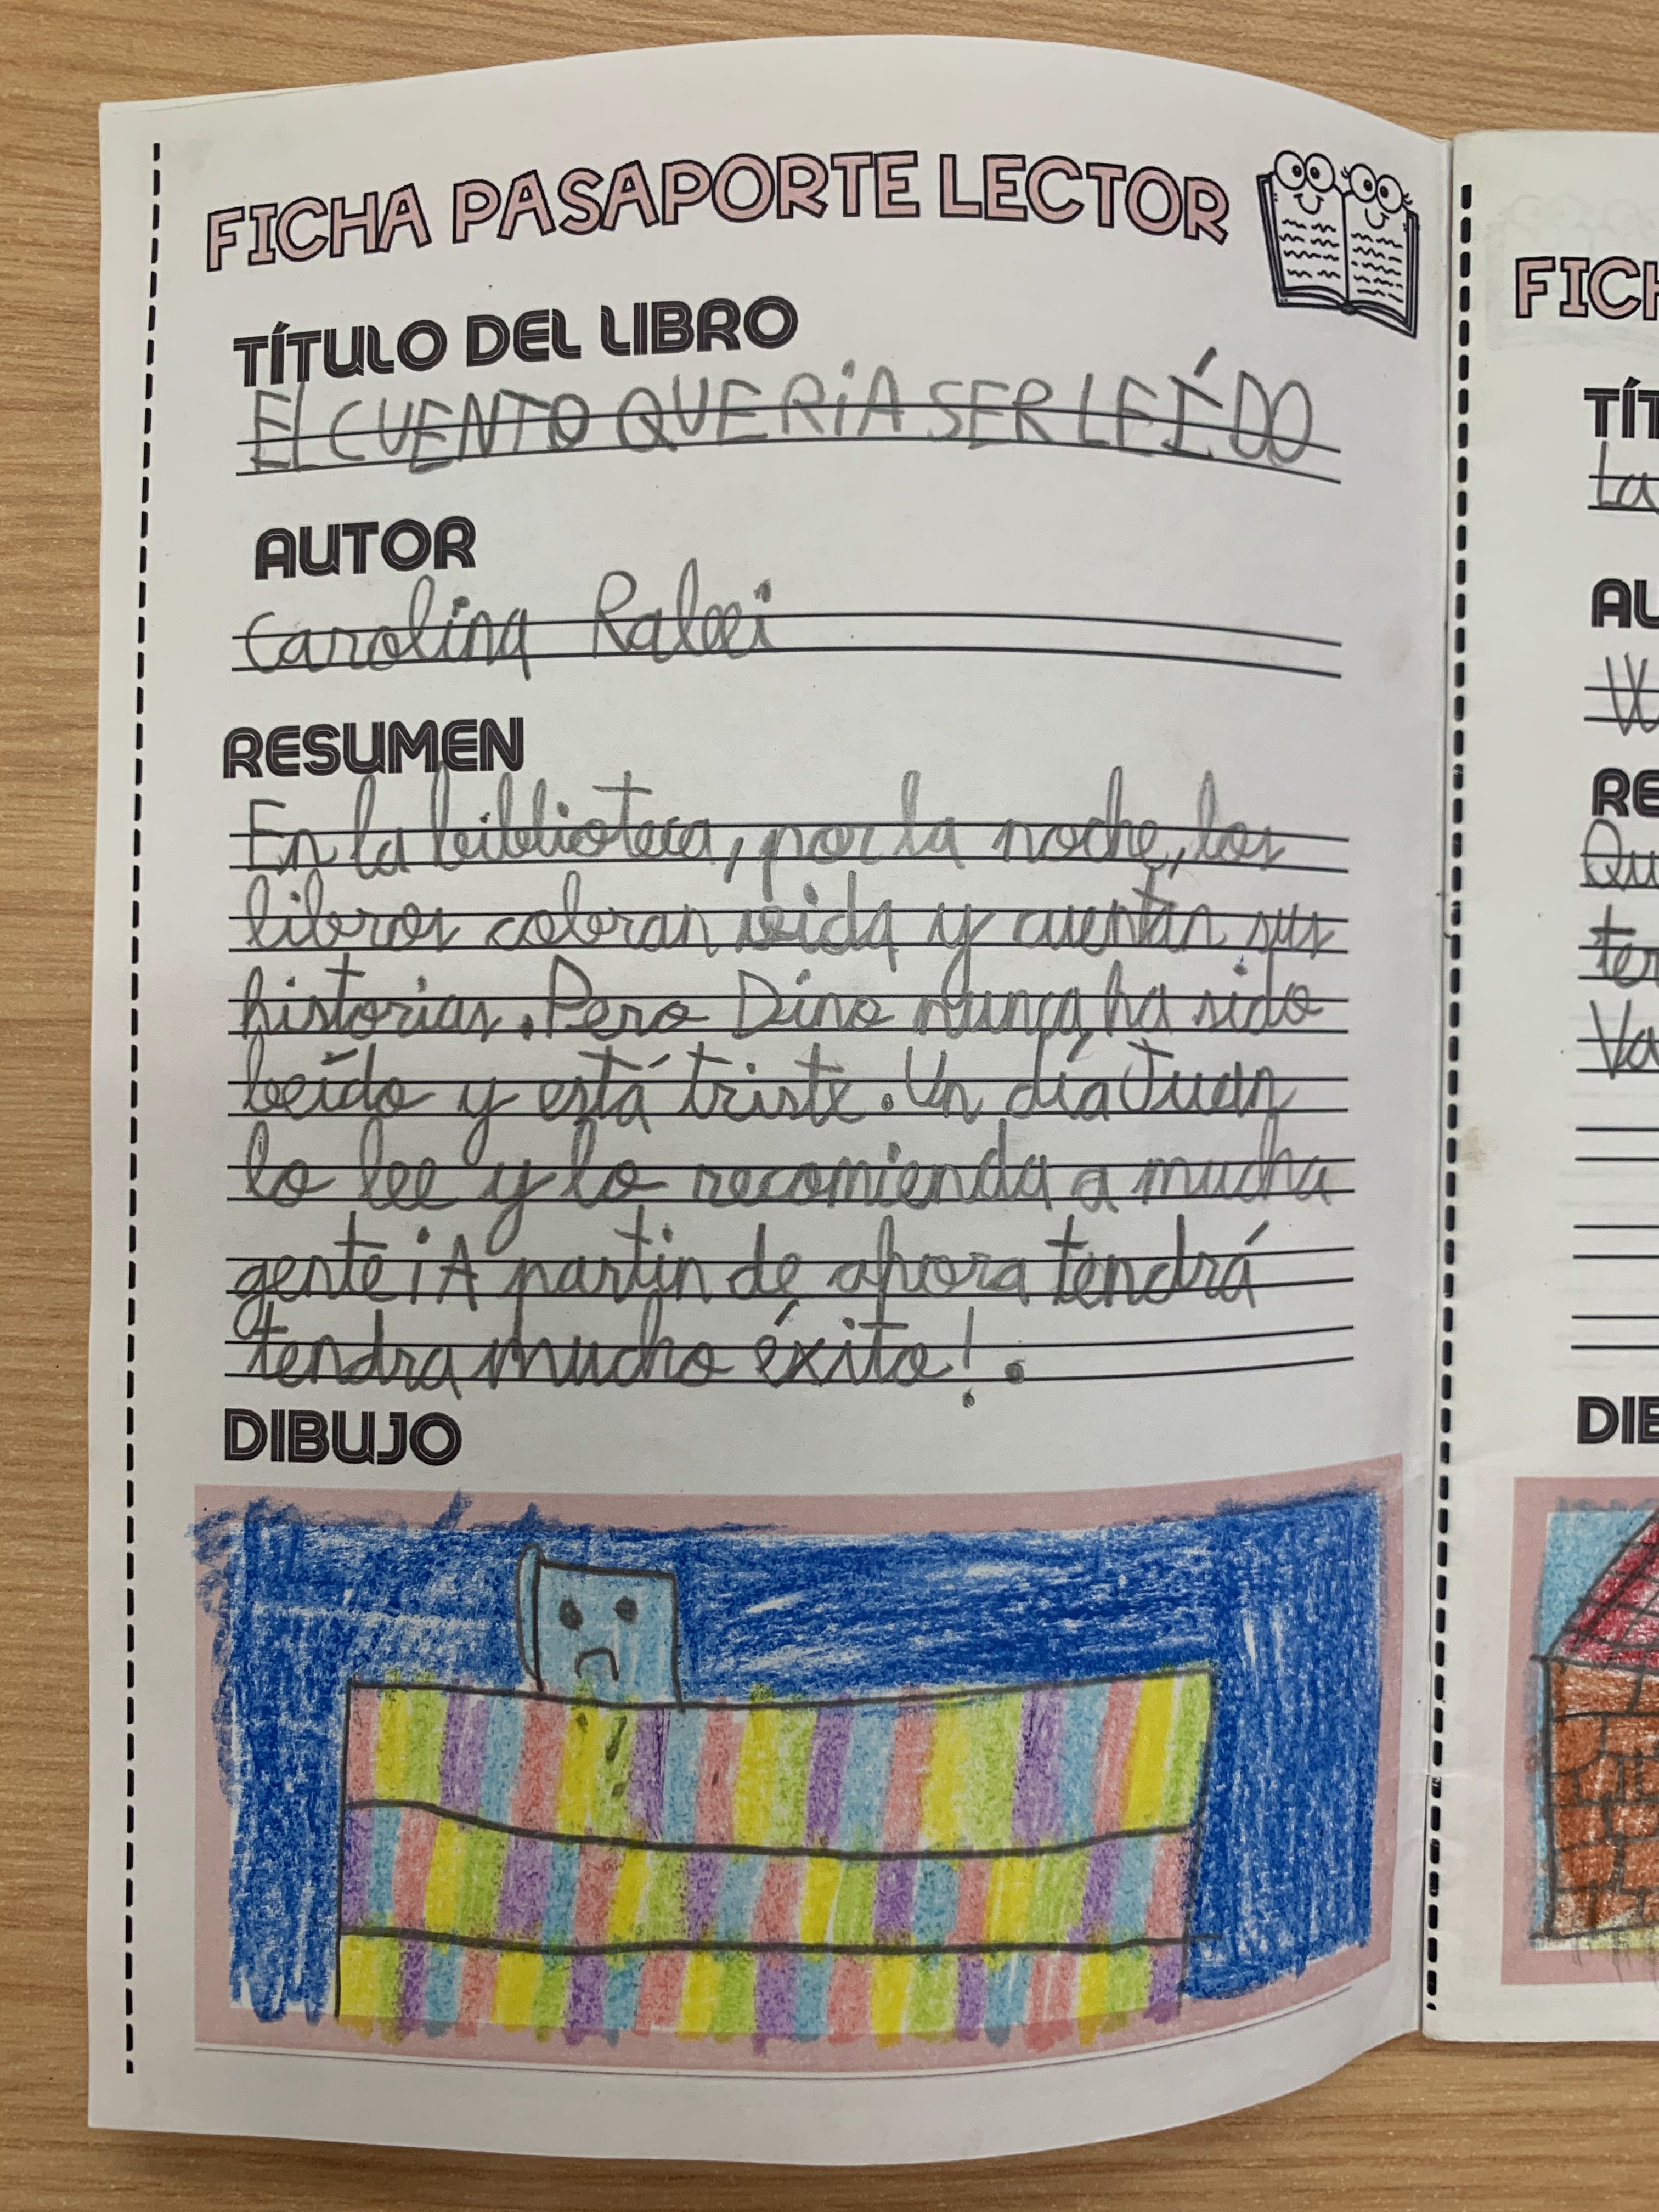 FICHA PASAPORTE LECTOR
TÍTULO DEL LIBRO
El CUENTO QUERiA SER LEÍDO
AUTOR
Carolina
RESUMEN
En la biblioteca, por la noche, los
libros cobran vida y cuentan sus
historias. Pero Dino nunca ha sido
leído y está triste. Un día Juan
lo lee y lo recomienda a mucha
gente ¡A partir de ahora tendrá
tendra mucho éxito!.
DIBUJO
FICH
TÍT
La
AU
W
RE
Qu
ter
Va
DIB